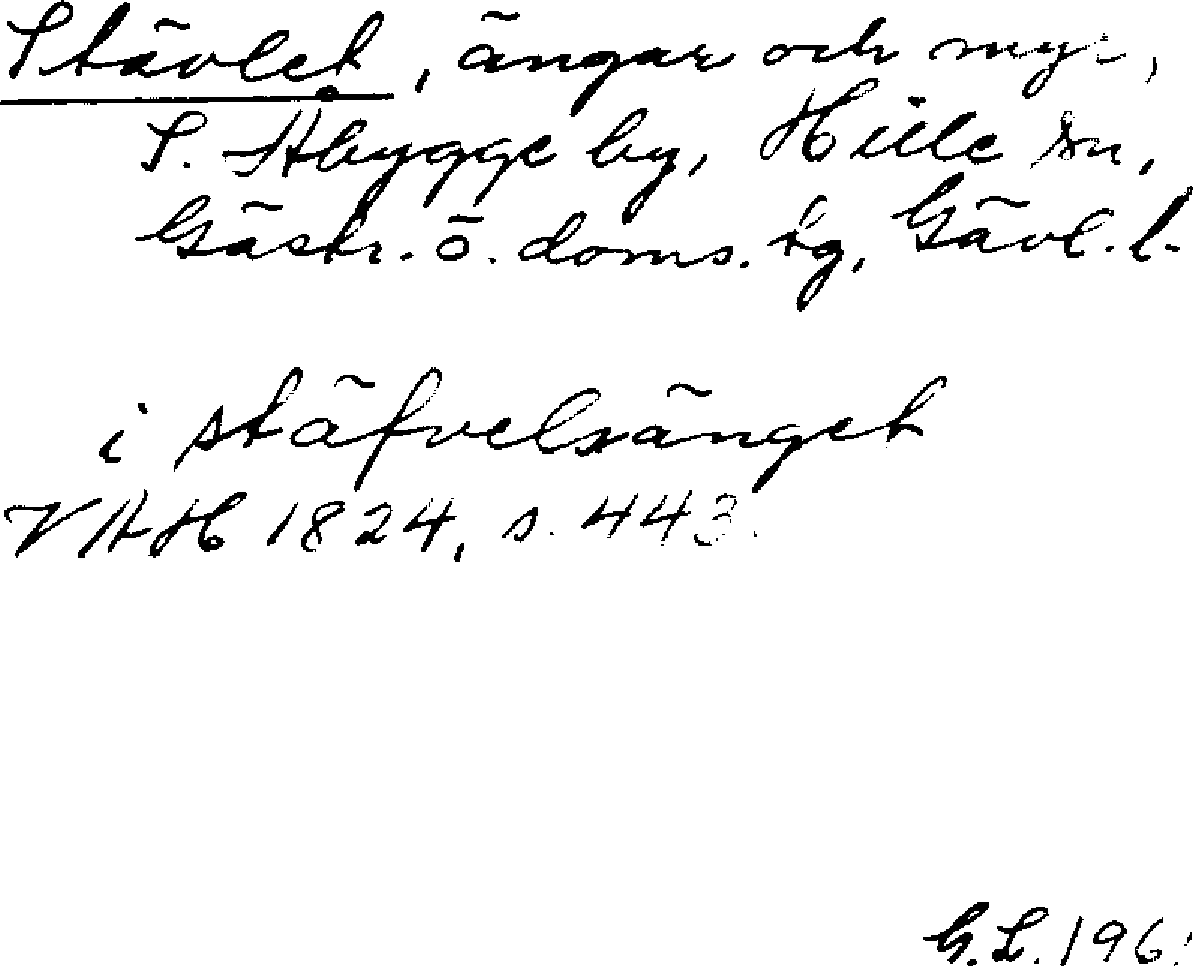 Stävlet, ängar och myr,
S. Åbygge by, Hille sn,
Gästr. ö. doms. tg, Gävl. l.
i stäfvelsänget
VAH 1824, s. 443.
G.L. 196